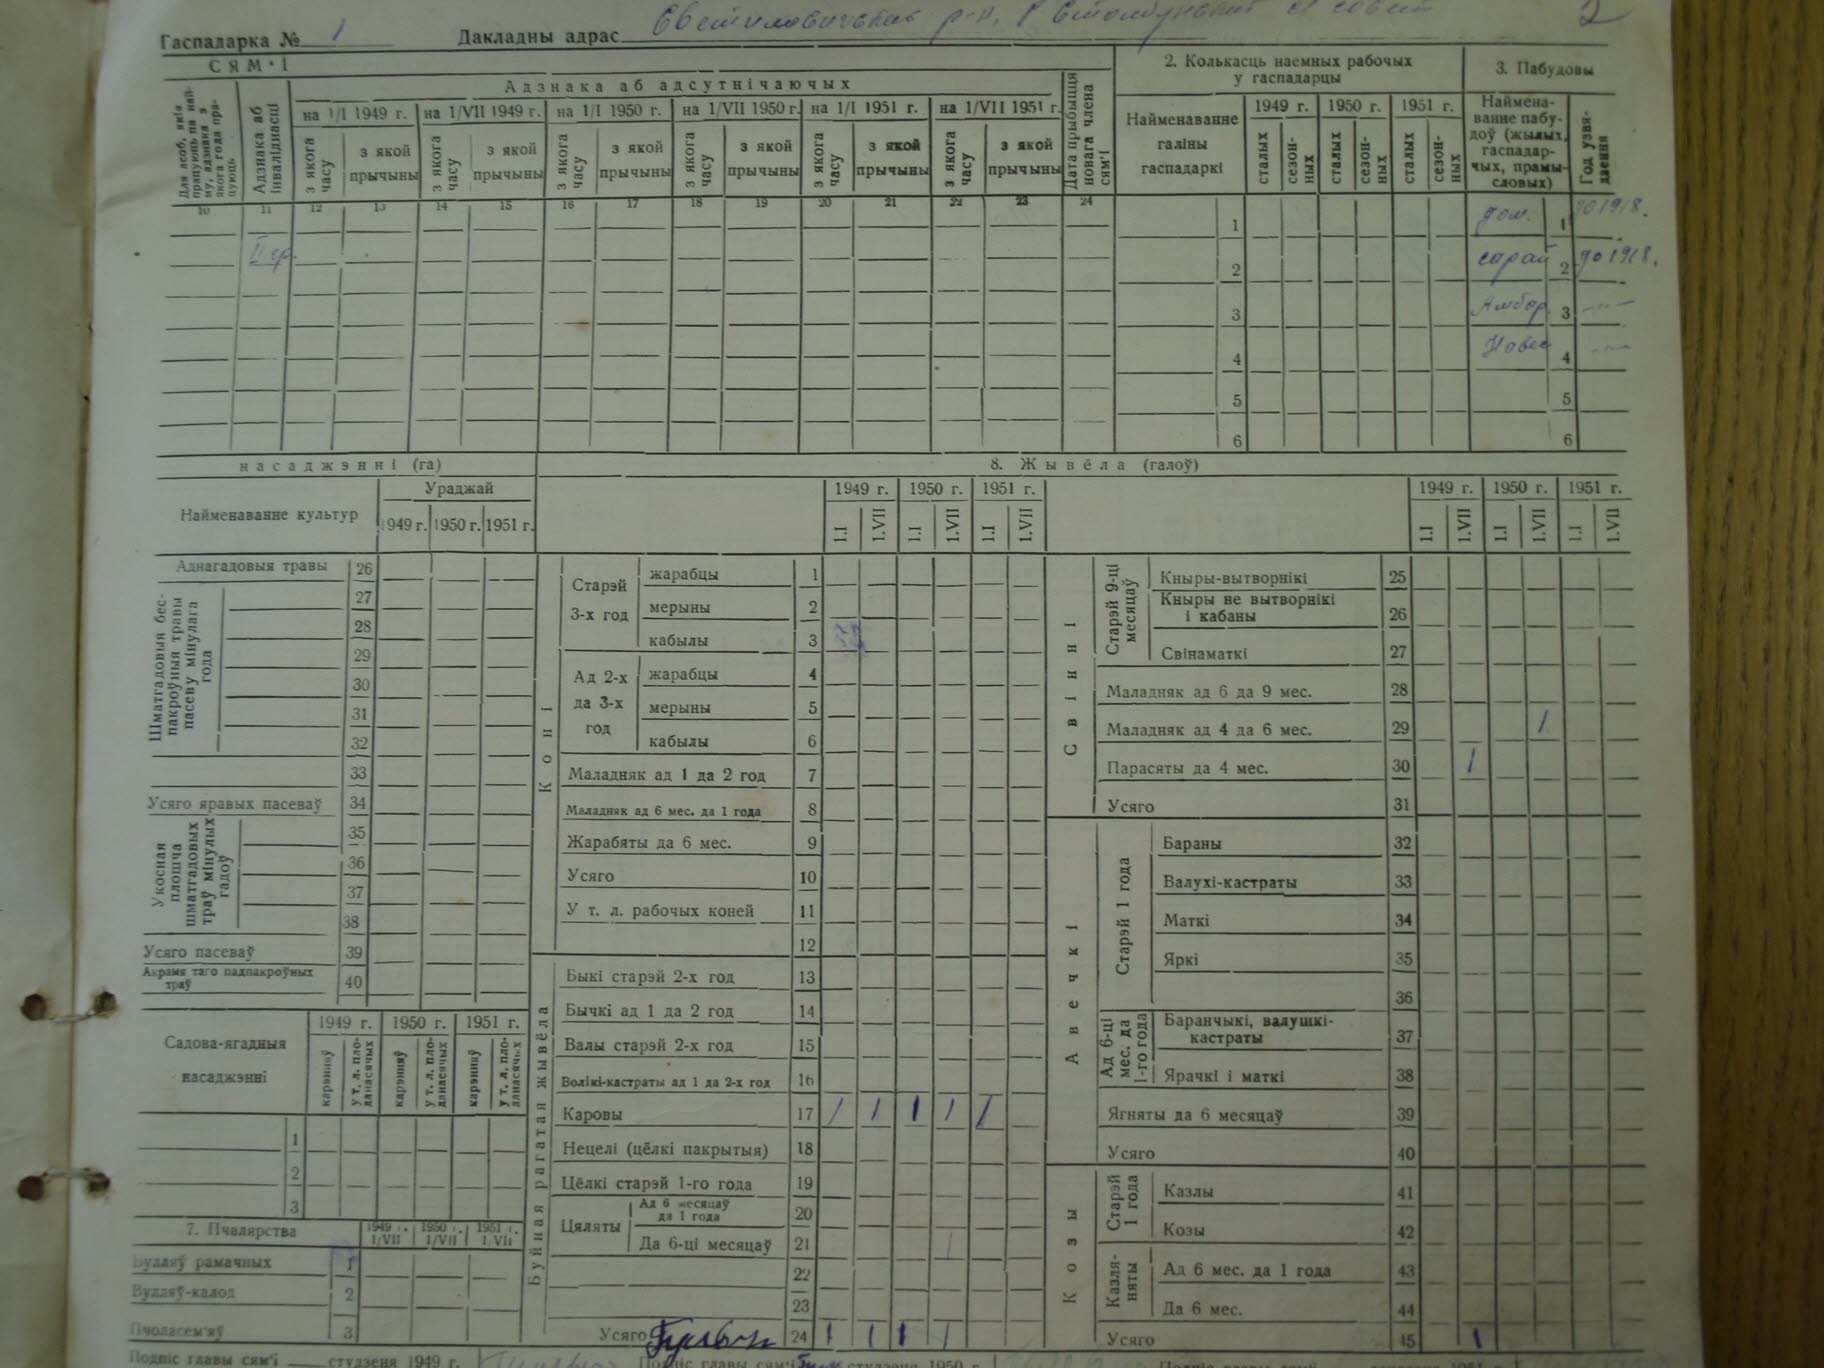 2
Гаспадарка № 1 Дакладны адрас
СЯМ'І
Адзнака аб адсутнічаючых
2. Колькасць наемных рабочых у гаспадарцы
3. Пабудовы
Адзнака аб інваліднасці
на 1/І 1949 г. на 1/VII 1949 г. на 1/І 1950 г. на 1/VII 1950 г. на 1/І 1951 г. на 1/VII 1951 г.
з якога часу з якой прычыны з якога часу з якой прычыны з якога часу з якой прычыны з якога часу з якой прычыны з якога часу з якой прычыны з якога часу з якой прычыны
Дата прыбыцця новага члена сям'і
Найменаванне галіны гаспадаркі
1949 г. 1950 г. 1951 г.
сталых сезонных сталых сезонных сталых сезонных
Наймена-
ванне пабу-
доў (жылых,
гаспадар-
чых, прамы-
словых)
Год узвя-
дзення
10 11 12 13 14 15 16 17 18 19 20 21 22 23 24
1 дом. 1 до 1918.
ІІ гр. 2 сарай 2 до 1918.
3 Амбар 3 -"-
4 Навес 4 -"-
5 5
6 6
насаджэнні (га)
Найменаванне культур
Ураджай
1949 г. 1950 г. 1951 г.
Аднагадовыя травы 26
Шматгадовыя бес-
пакроўныя травы
пасеву мінулага
года
27
28
29
30
31
32
33
Усяго яравых пасеваў 34
Укосная
плошча
шматгадовых
траў мінулых
гадоў
35
36
37
38
Усяго пасеваў 39
Акрамя таго падпакроўных
траў 40
Садова-ягадныя
насаджэнні
1949 г. 1950 г. 1951 г.
карэнняў у т. л. пло-
даносячых карэнняў у т. л. пло-
даносячых карэнняў у т. л. пло-
даносячых
1
2
3
7. Пчалярства
1949 г. 1/VII 1950 г. 1/VII 1951 г. 1/VII
Вулляў рамачных 1
Вулляў-калод 2
Пчоласем'яў 3
8. Жывёла (галоў)
1949 г. 1950 г. 1951 г.
1.I 1.VII 1.I 1.VII 1.I 1.VII
Коні
Старэй
3-х год
жарабцы 1
мерыны 2
кабылы 3
Ад 2-х
да 3-х
год
жарабцы 4
мерыны 5
кабылы 6
Маладняк ад 1 да 2 год 7
Маладняк ад 6 мес. да 1 года 8
Жарабяты да 6 мес. 9
Усяго 10
У т. л. рабочых коней 11
12
Буйная рагатая жывёла
Быкі старэй 2-х год 13
Бычкі ад 1 да 2 год 14
Валы старэй 2-х год 15
Волікі-кастраты ад 1 да 2-х год 16
Каровы 17 1 1 1 1 1
Нецелі (цёлкі пакрытыя) 18
Цёлкі старэй 1-го года 19
Цяляты
Ад 6 месяцаў
да 1 года 20
Да 6-ці месяцаў 21 1
22
23
Усяго 24 1 1 1 1
1949 г. 1950 г. 1951 г.
1.I 1.VII 1.I 1.VII 1.I 1.VII
Свінні
Старэй 9-ці
месяцаў
Кныры-вытворнікі 25
Кныры не вытворнікі
і кабаны 26
Свінаматкі 27
Маладняк ад 6 да 9 мес. 28
Маладняк ад 4 да 6 мес. 29 1
Парасяты да 4 мес. 30 1
Усяго 31
Авечкі
Старэй 1 года
Бараны 32
Валухі-кастраты 33
Маткі 34
Яркі 35
36
Ад 6-ці
мес. да
1-го года
Баранчыкі, валушкі-
кастраты 37
Ярачкі і маткі 38
Ягняты да 6 месяцаў 39
Усяго 40
Козы
Старэй
1 года
Казлы 41
Козы 42
Казля-
няты
Ад 6 мес. да 1 года 43
Да 6 мес. 44
Усяго 45 1
Подпіс главы сям'і студзеня 1949 г. Подпіс главы сям'і студзеня 1950 г.